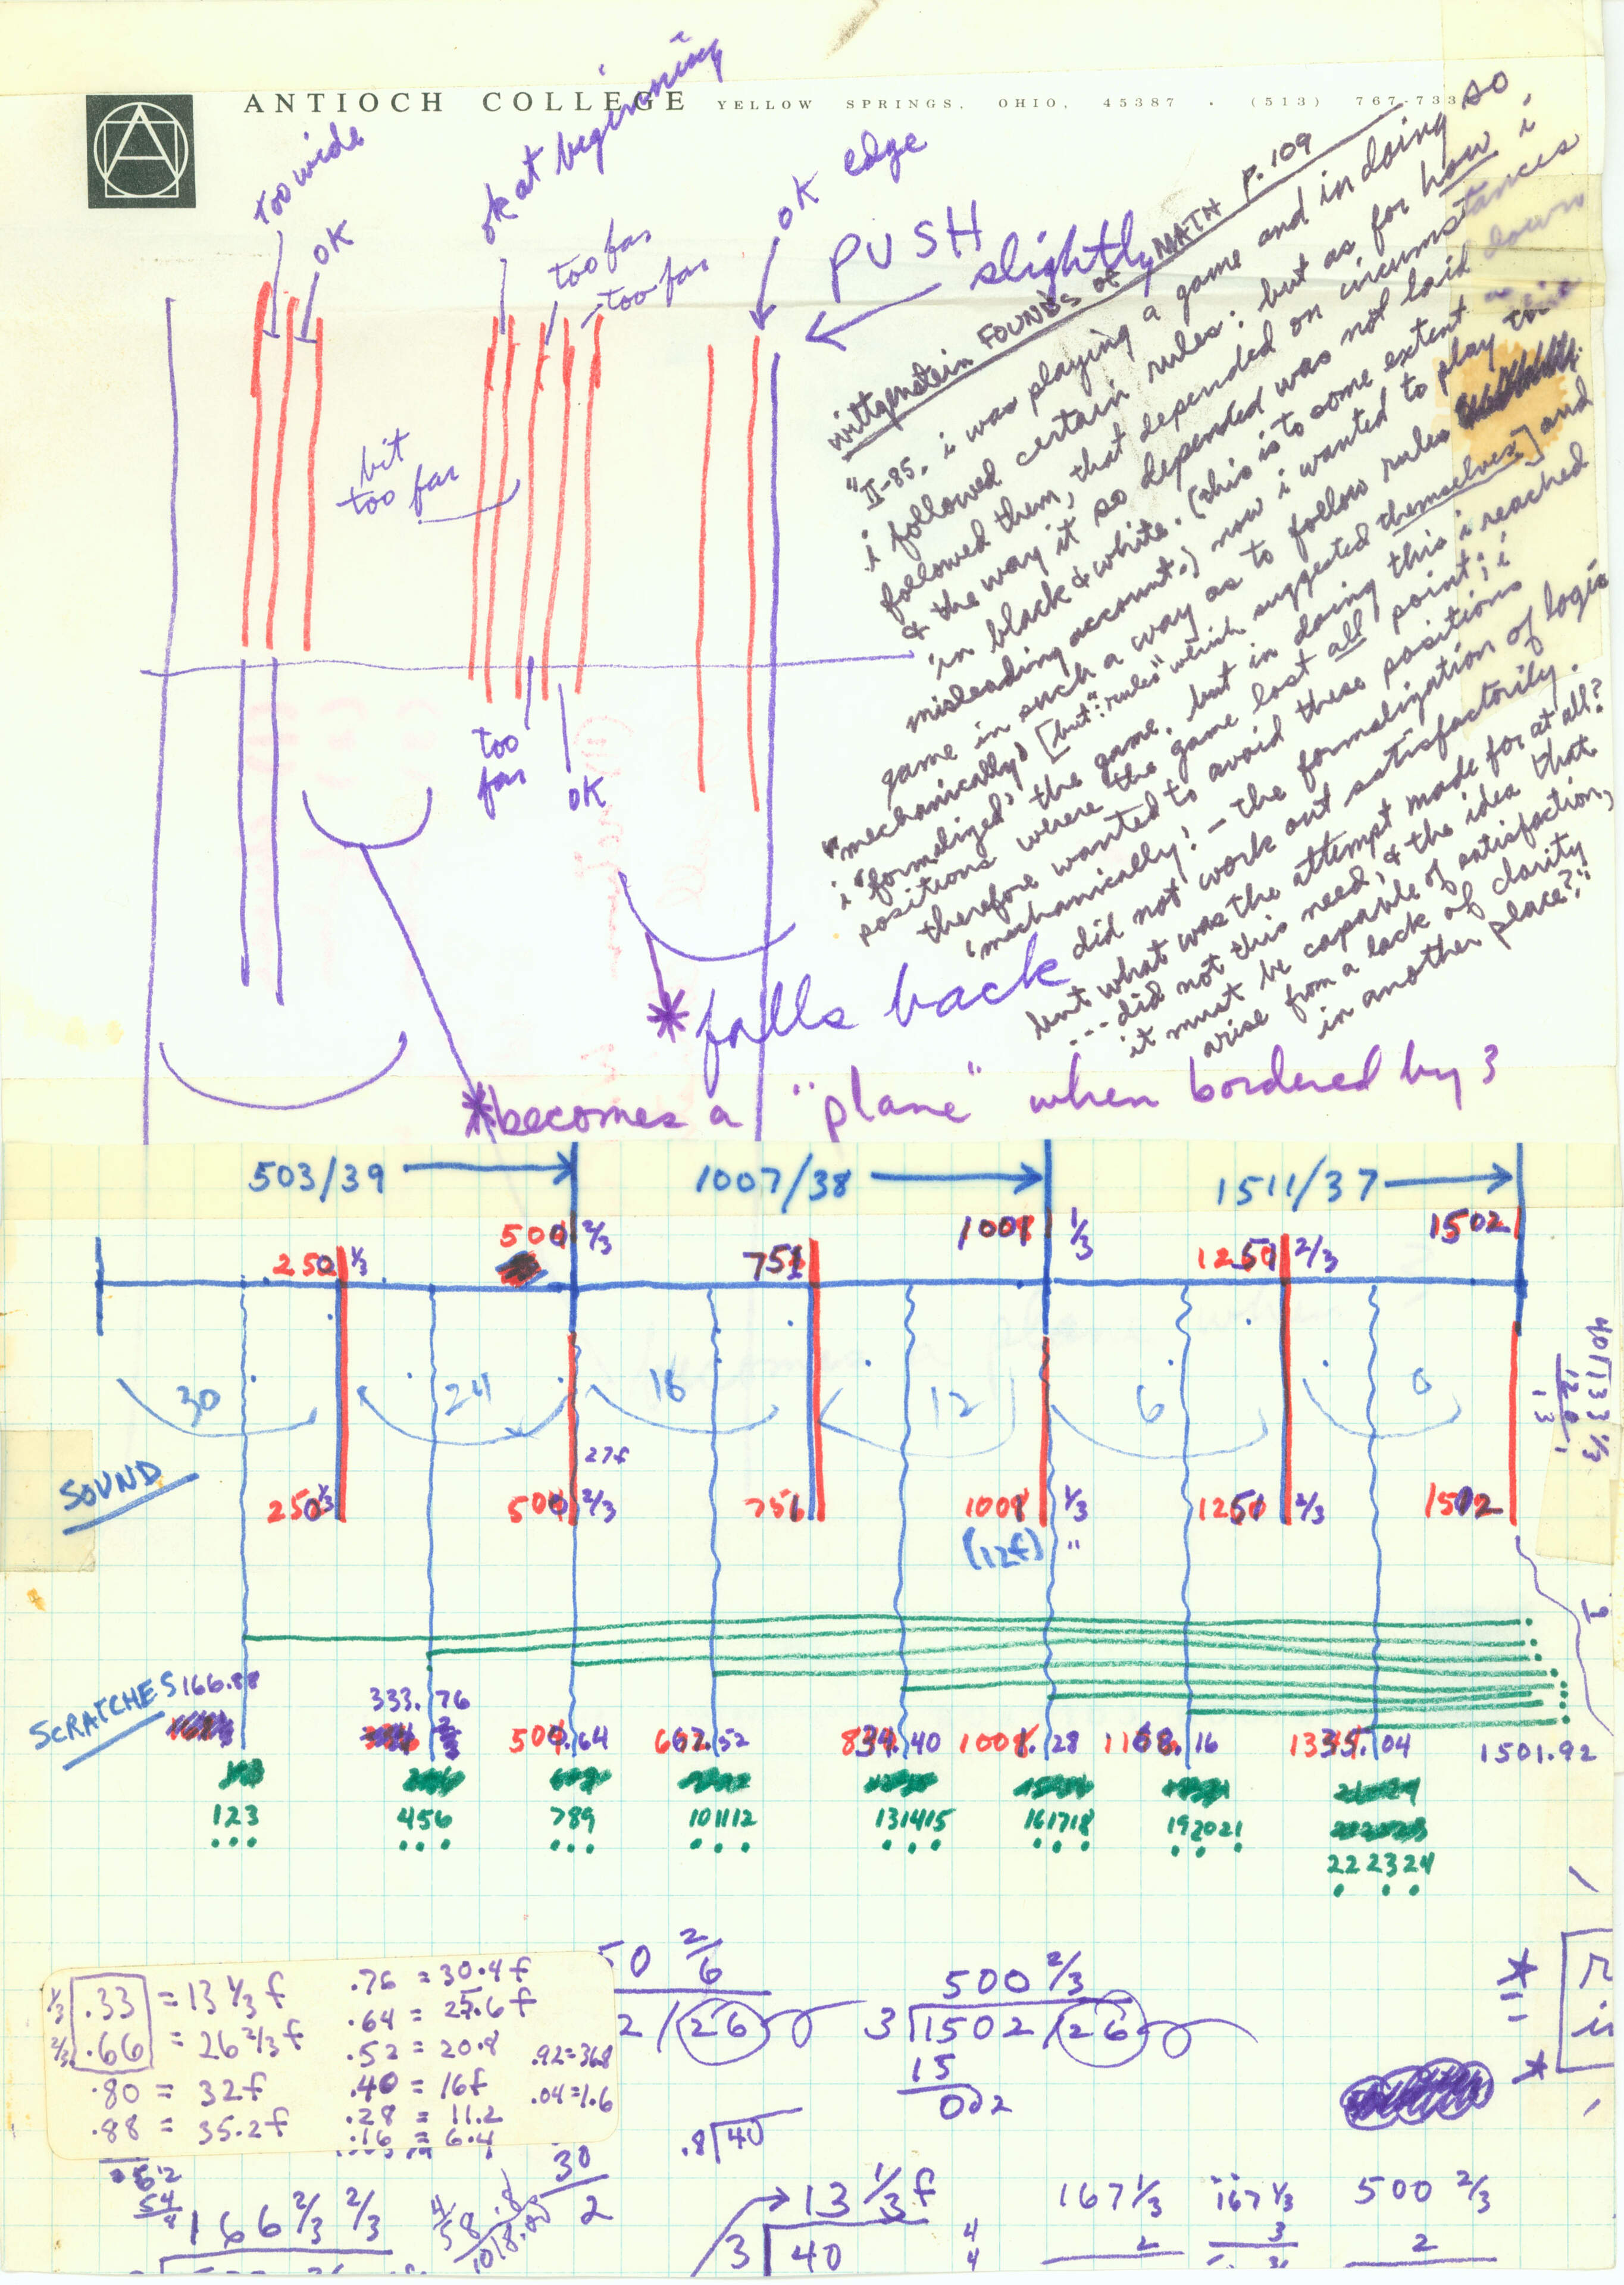 ANTIOCH COLLEGE YELLOW SPRINGS, OHIO, 45387 · (513) 767-733
too wide
OK
ok at beginning
too far
too far
OK edge
PUSH slightly
bit
too far
too
far
OK
wittgenstein FOUNDS of MATH p.109
"II-85. i was playing a game and in doing so,
i followed certain rules: but as for how i
followed them, that depended on circumstances
& the way it so depended was not laid down
in black & white. (this is to some extent a
misleading account.) now i wanted to play this
game in such a way as to follow rules
"mechanically" [but: "rules" which suggested themselves] and
i "formalized" the game. but in doing this i reached
positions where the game lost all point; i
therefore wanted to avoid these positions
'mechanically'! - the formalization of logic
did not work out satisfactorily.
but what was the attempt made for at all?
... did not this need, & the idea that
it must be capable of satisfaction,
arise from a lack of clarity
in another place?"
* falls back
* becomes a "plane" when bordered by 3
503/39
1007/38
1511/37
250 1/3
500 2/3
751
1001 1/3
1251 2/3
1502
30
24
18
12
6
0
SOUND
27f
250 1/3
500 2/3
751
1001 1/3
1251 2/3
1502
(12f) "
40 133 1/3
120
13
SCRATCHES
166.88
333.76
500.64
667.52
834.40
1001.28
1168.16
1335.04
1501.92
1 2 3
4 5 6
7 8 9
10 11 12
13 14 15
16 17 18
19 20 21
22 23 24
1/3 .33 = 13 1/3 f
2/3 .66 = 26 2/3 f
.80 = 32f
.88 = 35.2f
.76 = 30.4f
.64 = 25.6f
.52 = 20.8
.40 = 16f
.28 = 11.2
.16 = 6.4
.92=36.8
.04=1.6
50 2/6
2/26
500 2/3
3 1502/26
15
002
.8 40
30
2
166 2/3 2/3
13 1/3 f
3 40
4
4
167 1/3
2
167 1/3
3
500 2/3
2